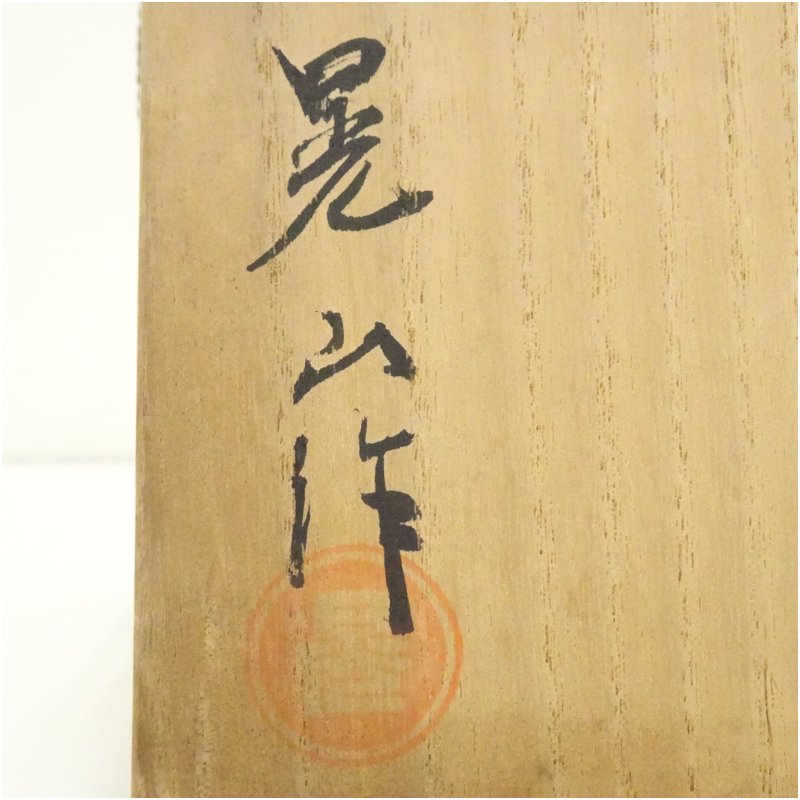 晃山作